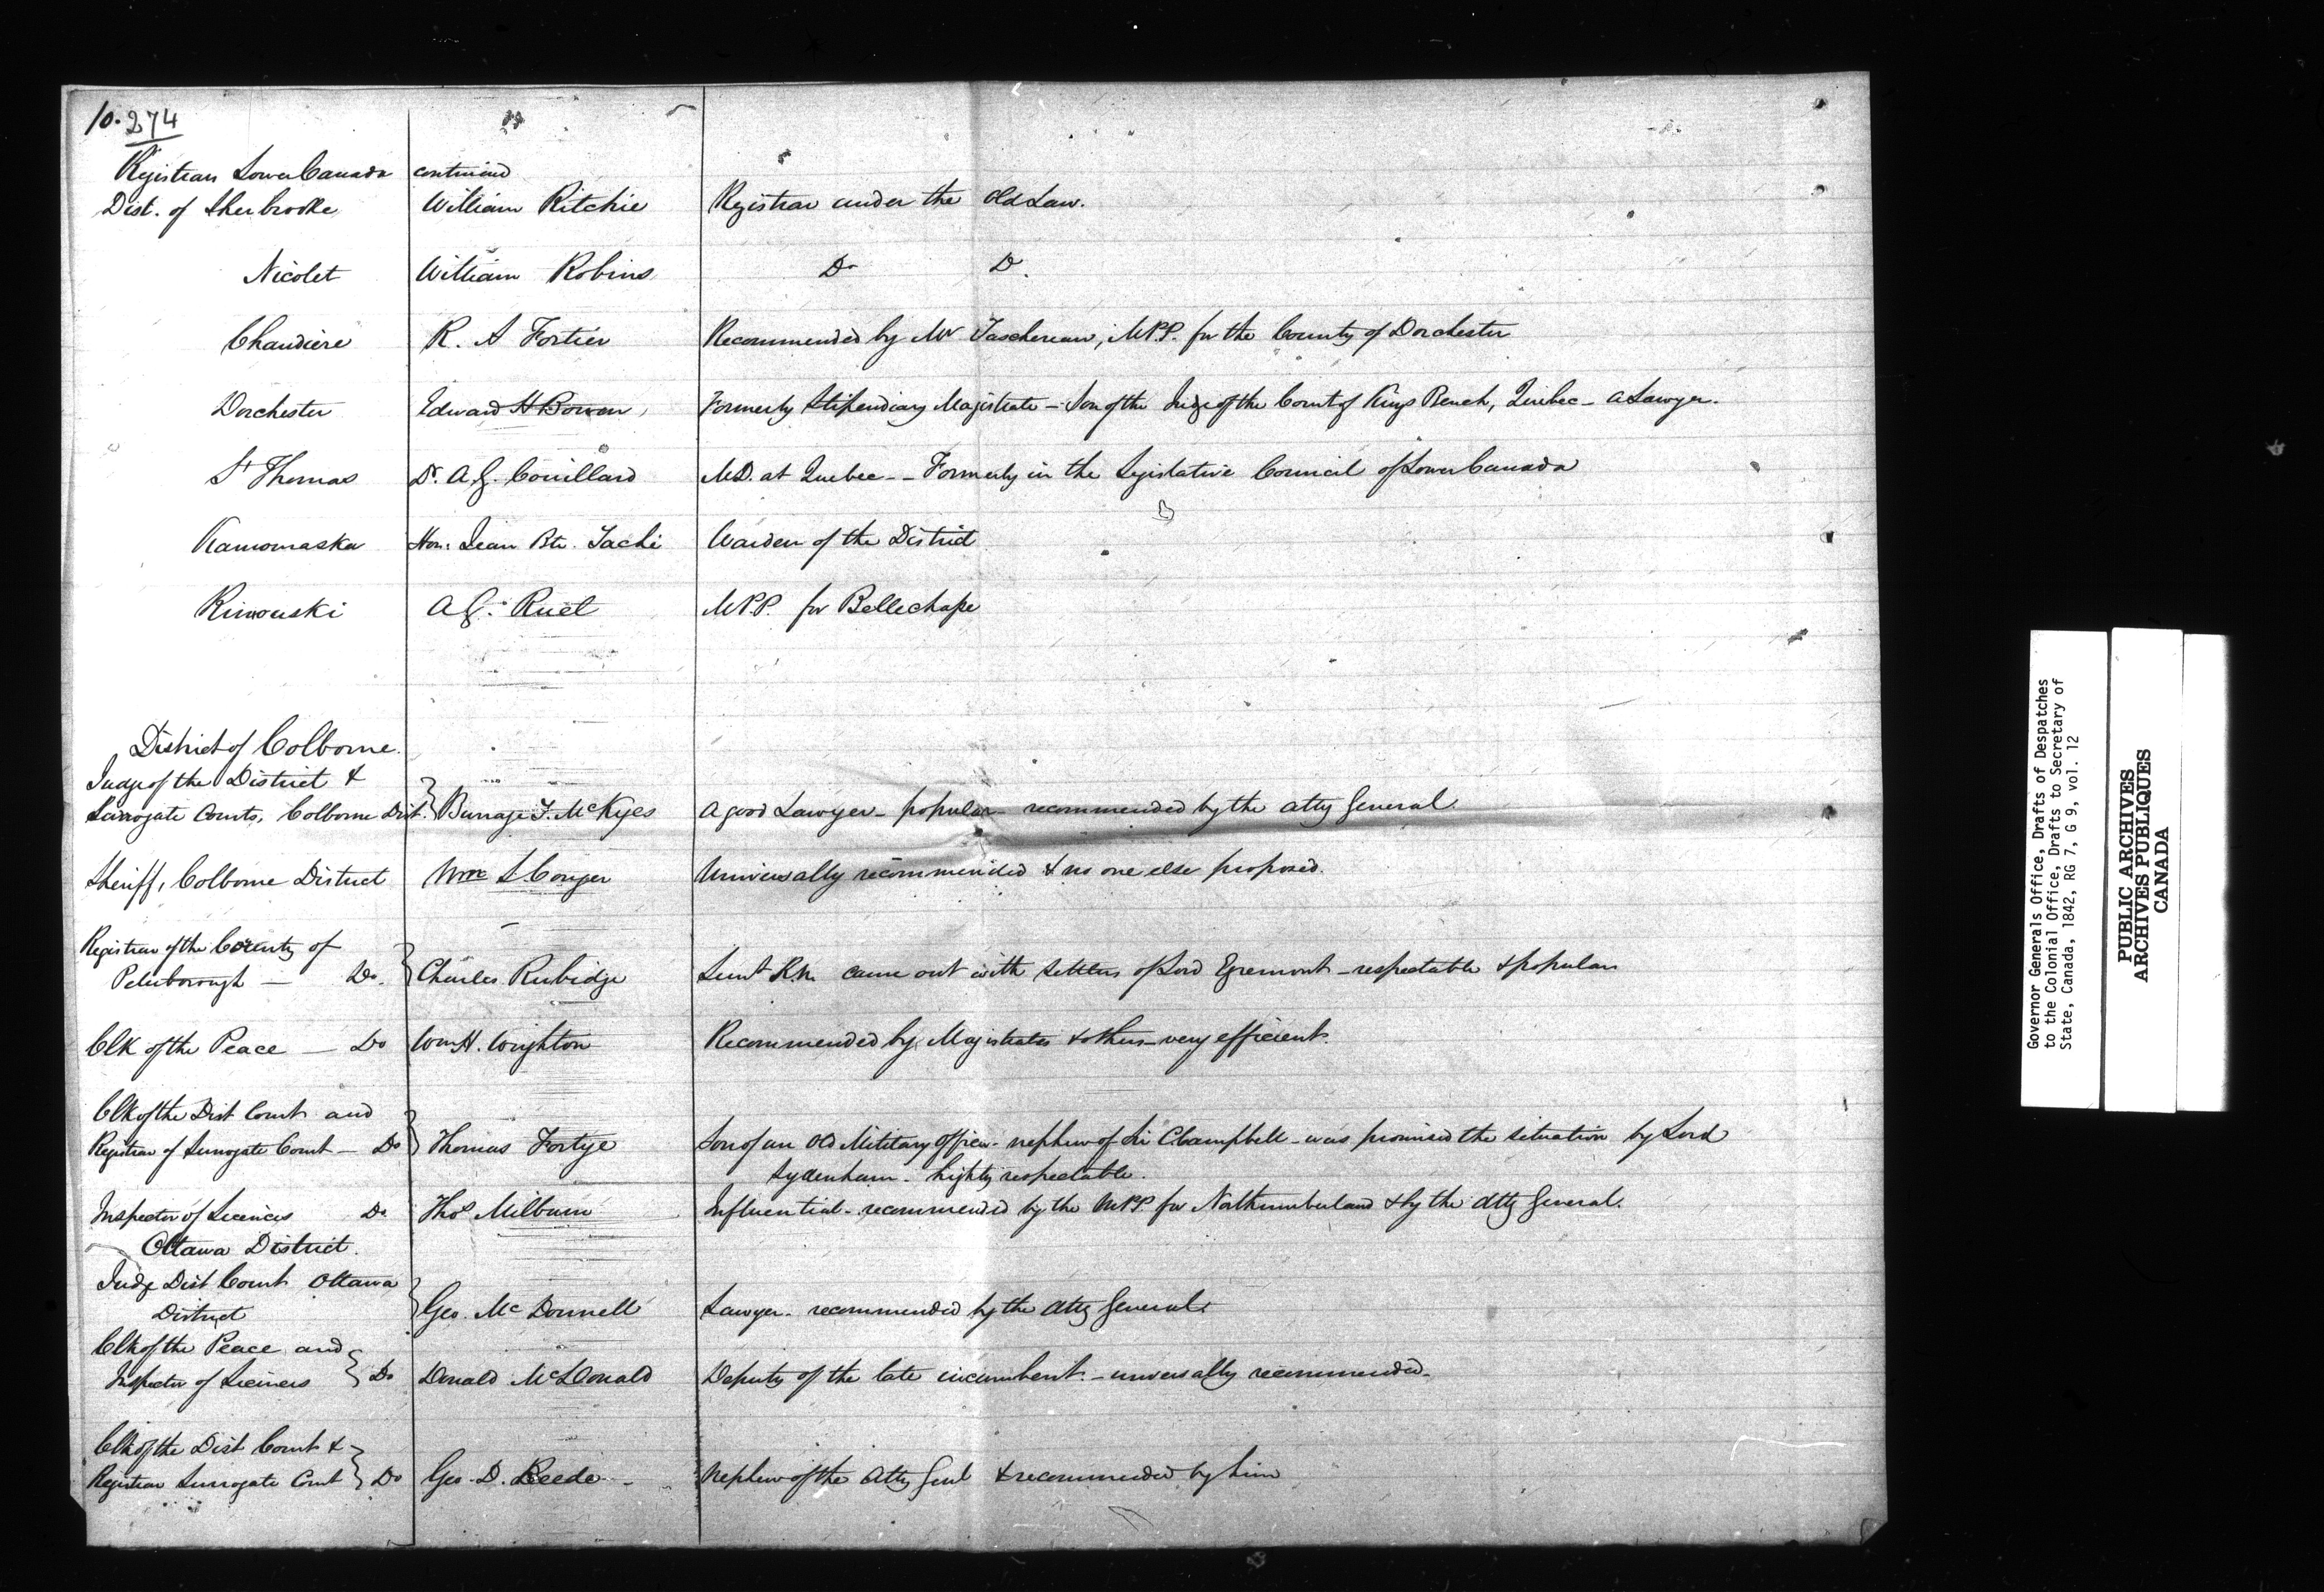 10. 274
Registrars Lower Canada continued
Dist. of Sherbrooke William Ritchie Registrar under the Old Law.
Nicolet William Robins Do Do.
Chaudiere R. A Fortier Recommended by Mr Taschereau, M.P.P. for the County of Dorchester
Dorchester Edward H Bowen, Formerly Stipendiary Magistrate - Son of the Judge of the Court of Kings Bench, Quebec - a Lawyer.
St Thomas Dr. A. G. Couillard M.D. at Quebec - - Formerly in the Legislative Council of Lower Canada
Kamouraska Hon: Jean Bte. Taché Warden of the District
Rimouski A G. Ruel M.P.P. for Bellechasse
District of Colborne.
Judge of the District &
Surrogate Courts, Colborne Dist. Burrage Y. McKyes A good Lawyer - popular - recommended by the Atty General
Sheriff, Colborne District Wm S. Conger Universally recommended & no one else proposed.
Registrar of the County of
Peterborough - Do. Charles Rubidge Lieut R.N. came out with settlers of Lord Egremont - respectable & popular
Clk of the Peace - Do Wm H. Wrighton Recommended by Magistrates & others - very efficient.
Clk of the Dist Court and
Registrar of Surrogate Court - Do Thomas Fortye Son of an Old Military Officer - nephew of Sir C Campbell - was promised the situation by Lord
Sydenham - highly respectable.
Inspector of Licences Do. Thos Milburn Influential - recommended by the M.P.P. for Northumberland & by the Atty General.
Ottawa District.
Judge Dist Court Ottawa
District Geo. McDonnell Lawyer - recommended by the Atty General
Clk of the Peace and
Inspector of Licences Do Donald McDonald Deputy of the late incumbent. - universally recommended -
Clk of the Dist Court &
Registrar Surrogate Court Do Geo. D. Reede - Nephew of the Atty Genl & recommended by him
Governor Generals Office, Drafts of Despatches
to the Colonial Office, Drafts to Secretary of
State, Canada, 1842, RG 7, G 9, vol. 12
PUBLIC ARCHIVES
ARCHIVES PUBLIQUES
CANADA